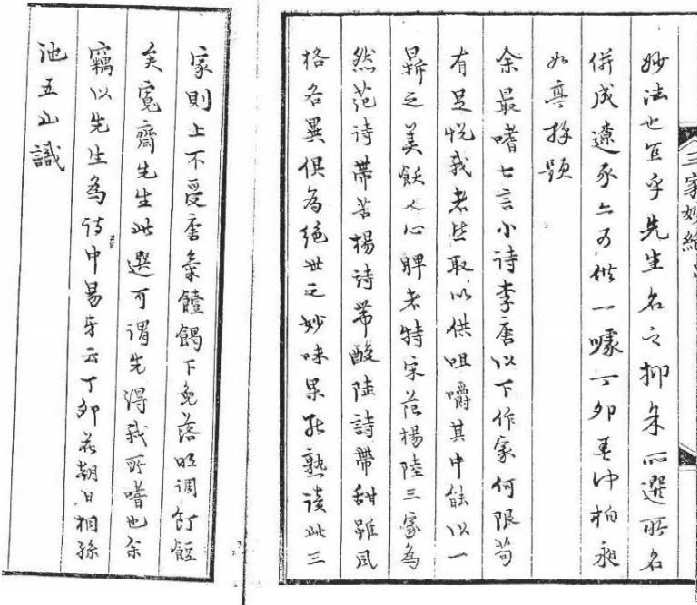 三家妙絶
妙法也宜乎先生名之抑朱所選所名
併成遼豕亦可供一噱丁卯春沖柏昶
如亭操題
余最嗜七言小詩李唐以下作家何限苟
有足悦我者皆取以供咀嚼其中能以一
臠之美飫人心脾者特宋范楊陸三家為
然范詩帯苦楊詩帯酸陸詩帯甜雖風
格各異俱為絶世之妙味果能熟読此三
家則上不受唐矣饐餲下免落明調飣餖
矣寛齋先生此選可謂先得我所嗜也余
竊以先生為詩中易牙云丁卯花朝日相孫
池五山識